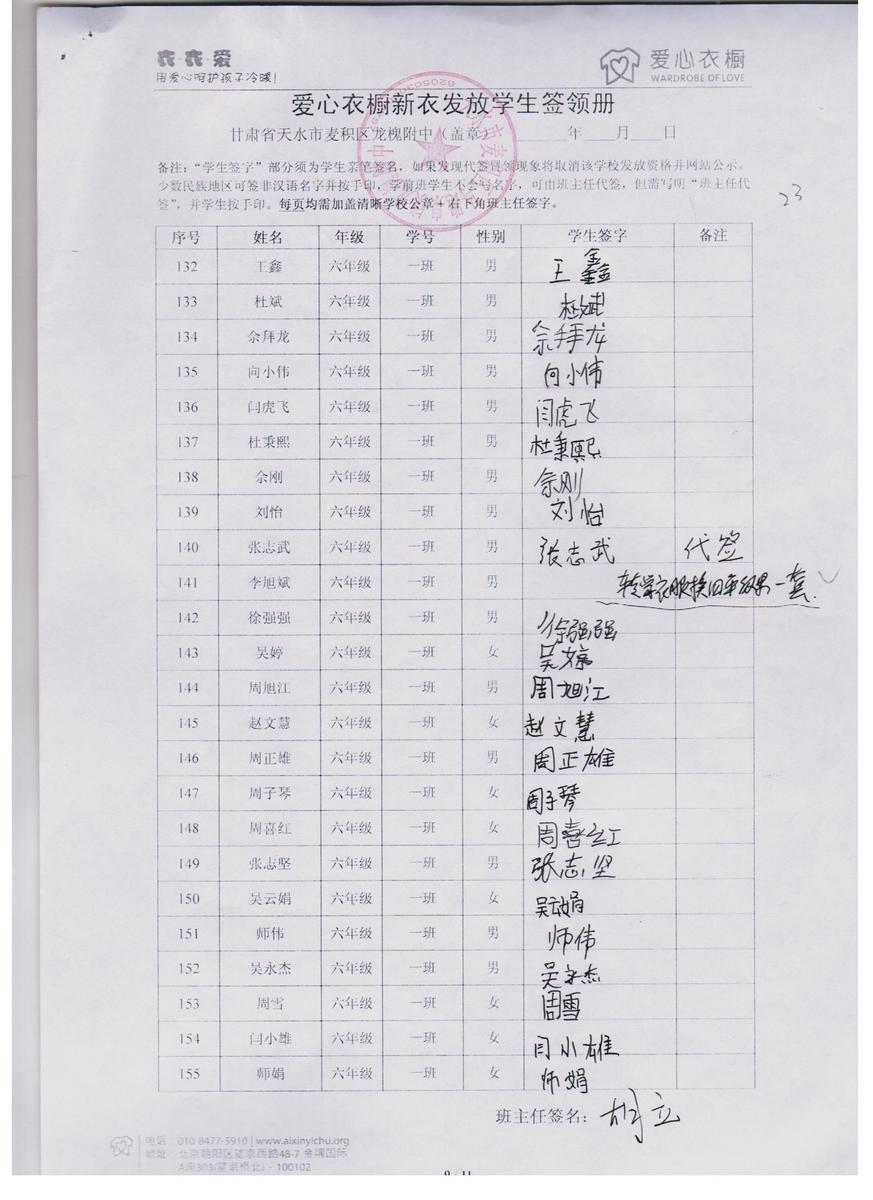 衣·衣·爱
用爱心呵护孩子冷暖!
爱心衣橱
WARDROBE OF LOVE
爱心衣橱新衣发放学生签领册
甘肃省天水市麦积区龙槐附中(盖章) 年 月 日
备注:“学生签字”部分须为学生亲笔签名,如果发现代签冒领现象将取消该学校发放资格并网站公示。
少数民族地区可签非汉语名字并按手印,学前班学生不会写名字,可由班主任代签,但需写明“班主任代
签”,并学生按手印。每页均需加盖清晰学校公章+右下角班主任签字。
23
序号 姓名 年级 学号 性别 学生签字 备注
132 王鑫 六年级 一班 男 王鑫
133 杜斌 六年级 一班 男 杜斌
134 佘拜龙 六年级 一班 男 佘拜龙
135 向小伟 六年级 一班 男 向小伟
136 闫虎飞 六年级 一班 男 闫虎飞
137 杜秉熙 六年级 一班 男 杜秉熙
138 佘刚 六年级 一班 男 佘刚
139 刘怡 六年级 一班 男 刘怡
140 张志武 六年级 一班 男 张志武 代签
141 李旭斌 六年级 一班 男 转学衣服换四年级男一套.
142 徐强强 六年级 一班 男 徐强强
143 吴婷 六年级 一班 女 吴婷
144 周旭江 六年级 一班 男 周旭江
145 赵文慧 六年级 一班 女 赵文慧
146 周正雄 六年级 一班 男 周正雄
147 周子琴 六年级 一班 女 周子琴
148 周喜红 六年级 一班 女 周喜红
149 张志坚 六年级 一班 男 张志坚
150 吴云娟 六年级 一班 女 吴云娟
151 师伟 六年级 一班 男 师伟
152 吴永杰 六年级 一班 男 吴永杰
153 周雪 六年级 一班 女 周雪
154 闫小雄 六年级 一班 女 闫小雄
155 师娟 六年级 一班 女 师娟
班主任签名: 胡立
电话 010-8477-5910 | www.aixinyichu.org
地址: 北京朝阳区望京西路48-7 金隅国际
A座303(望京桥北) - 100102
9 / 11